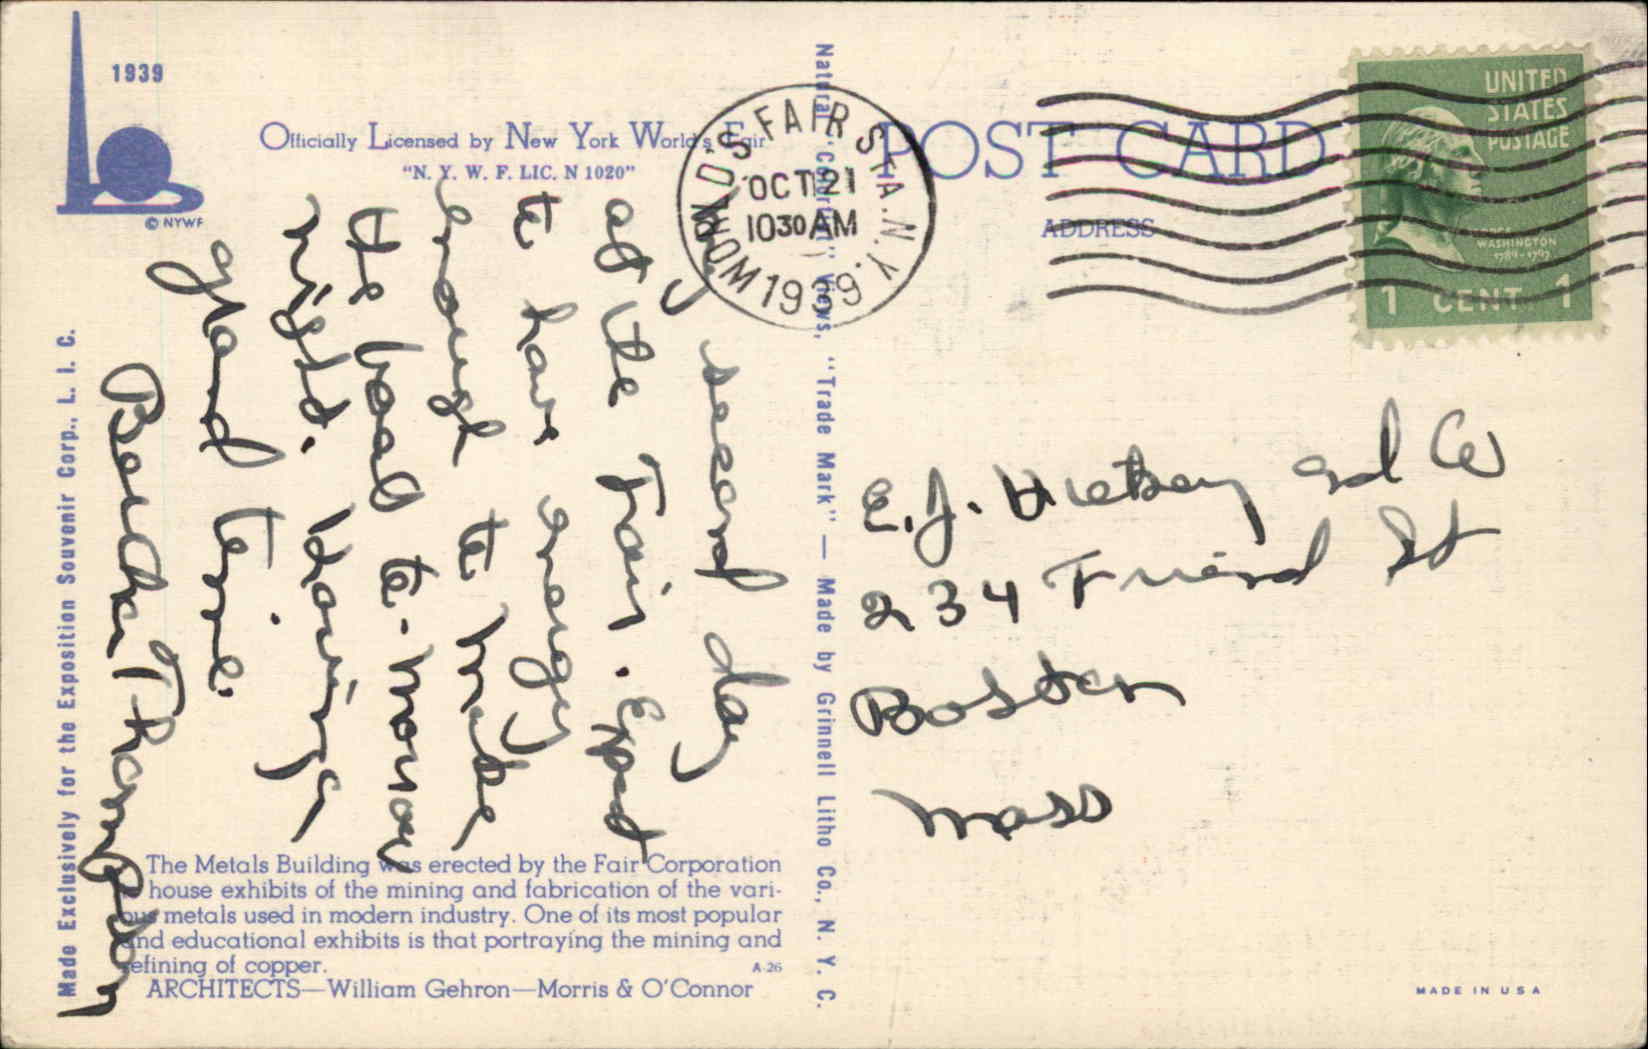 1939
© NYWF
Officially Licensed by New York World's Fair
"N. Y. W. F. LIC. N 1020"
POST CARD
ADDRESS
WORLD'S FAIR STA. N.Y.
OCT 21
10 30 AM
1939
UNITED
STATES
POSTAGE
GEORGE
WASHINGTON
1789-1797
1 CENT 1
My second day
at the Fair. Expect
to have energy
enough to make
the boat to-morrow
night. Having
grand time.
Thompson
E. J. and Co
234 Friend St
Boston
Mass
The Metals Building was erected by the Fair Corporation
house exhibits of the mining and fabrication of the vari-
ous metals used in modern industry. One of its most popular
and educational exhibits is that portraying the mining and
refining of copper.
A-26
ARCHITECTS—William Gehron—Morris & O'Connor
Made Exclusively for the Exposition Souvenir Corp., L. I. C.
Natural "Colortint" Views, "Trade Mark" — Made by Grinnell Litho Co., N. Y. C.
MADE IN USA